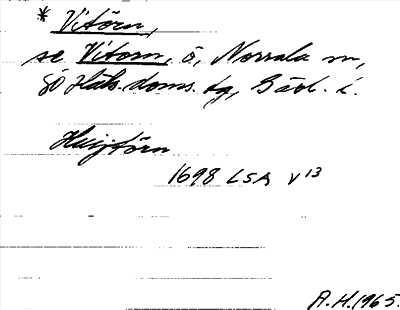 * Vitörn,
se Vitorn, ö, Norrala sn,
Sö Häls. doms. tg, Gävl. l.
Huijtörn
1698 LSA V 13
A.H. 1965.